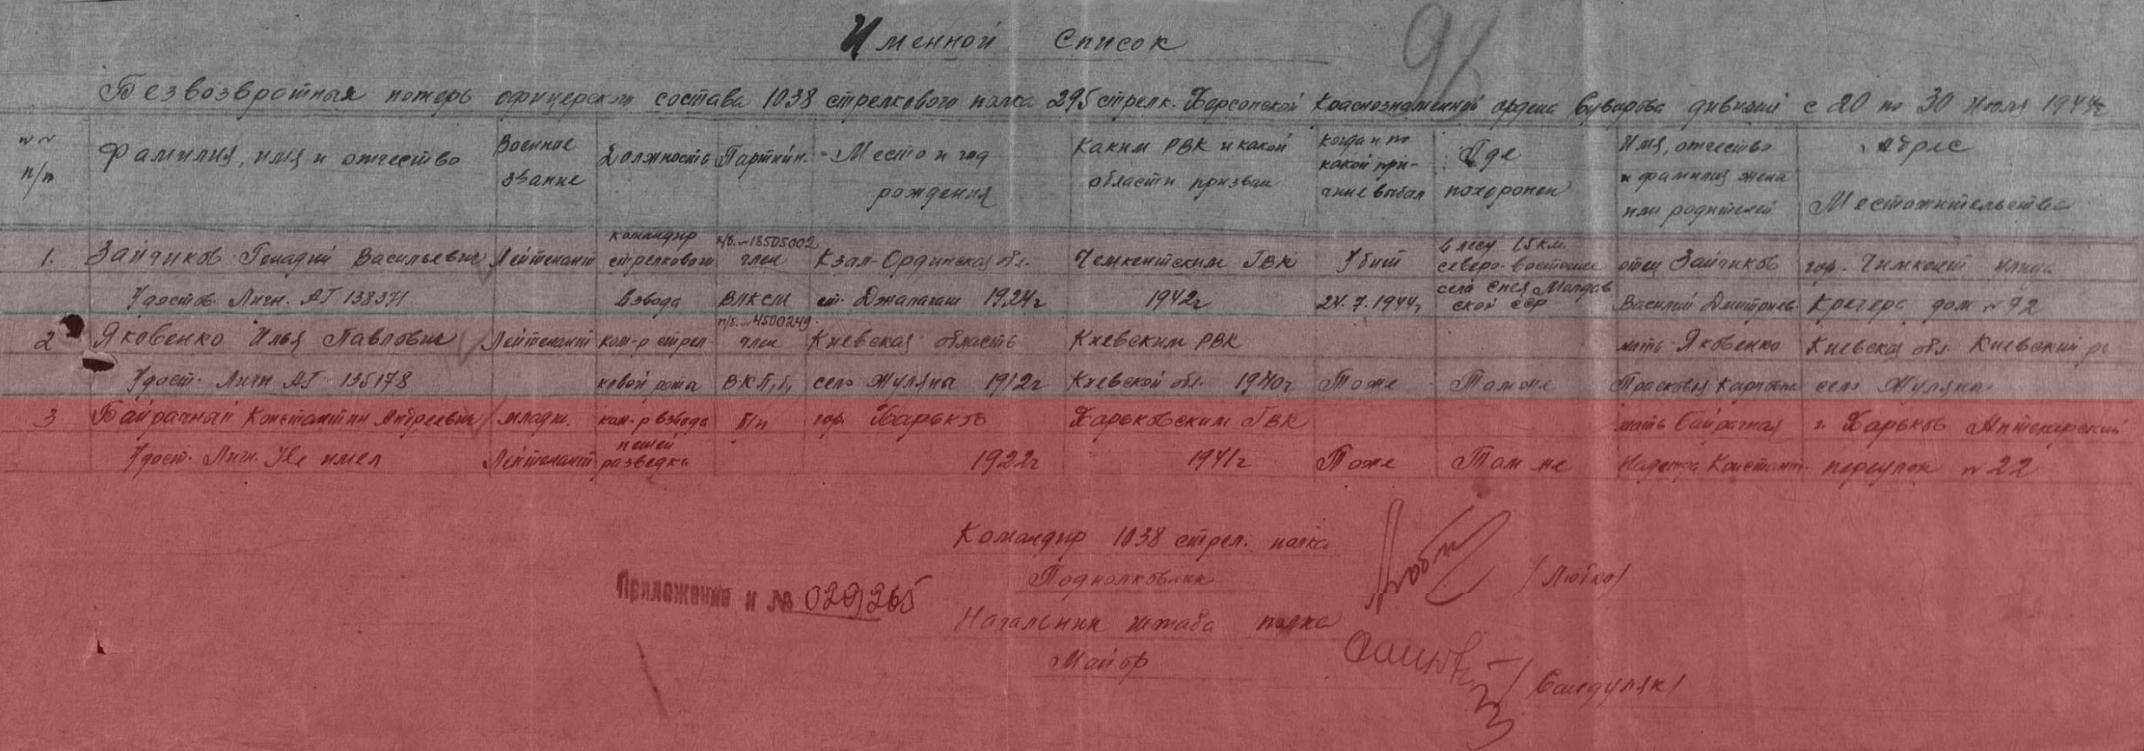 Именной список
94
Безвозвратная потерь офицерского состава 1038 стрелкового полка 295 стрелк. Херсонской Краснознаменной ордена Суворова дивизии с 20 по 30 июля 1944г
№№ п/п
Фамилия, имя и отчество
Военное звание
Должность
Партийн.
Место и год рождения
Каким РВК и какой области призван
Когда и по какой причине выбыл
Где похоронен
Имя, отчество и фамилия жены или родителей
Адрес Местожительства
1. Зайчиков Генадий Васильевич Лейтенант командир стрелкового взвода п/б. №18505002 член ВЛКСМ Кзал-Ординская обл. ст. Джалагаш 1924г Чемкентским ГВК 1942г Убит 24.7.1944г в лесу 1,5 км. северо-восточнее села Молдавской ССР отец Зайчиков Василий Дмитриев. гор. Чимкент улица дом №92
Удостов. Личн. АГ 138371
2 Яковенко Илья Павлович Лейтенант ком-р стрелковой роты п/б. №4500249 член ВКП/б/ Киевская область село Жуляны 1912г Киевским РВК Киевской обл. 1940г Тоже Там же мать Яковенко Прасковья Карповна Киевская обл. Киевский р-н село Жуляны
Удост. Личн АГ 135178
3 Байрачный Константин Андреевич младш. Лейтенант ком-р взвода пешей разведки б/п гор. Харьков 1922г Харьковским ГВК 1941г Тоже Там же мать Байрачная Надежда Констант. г. Харьков Аптекарский переулок №22
Удост. Личн. Не имел
Командир 1038 стрел. полка
Подполковник
/Любко/
Приложение к № 029265
Начальник штаба полка
Майор
/Сандуляк/